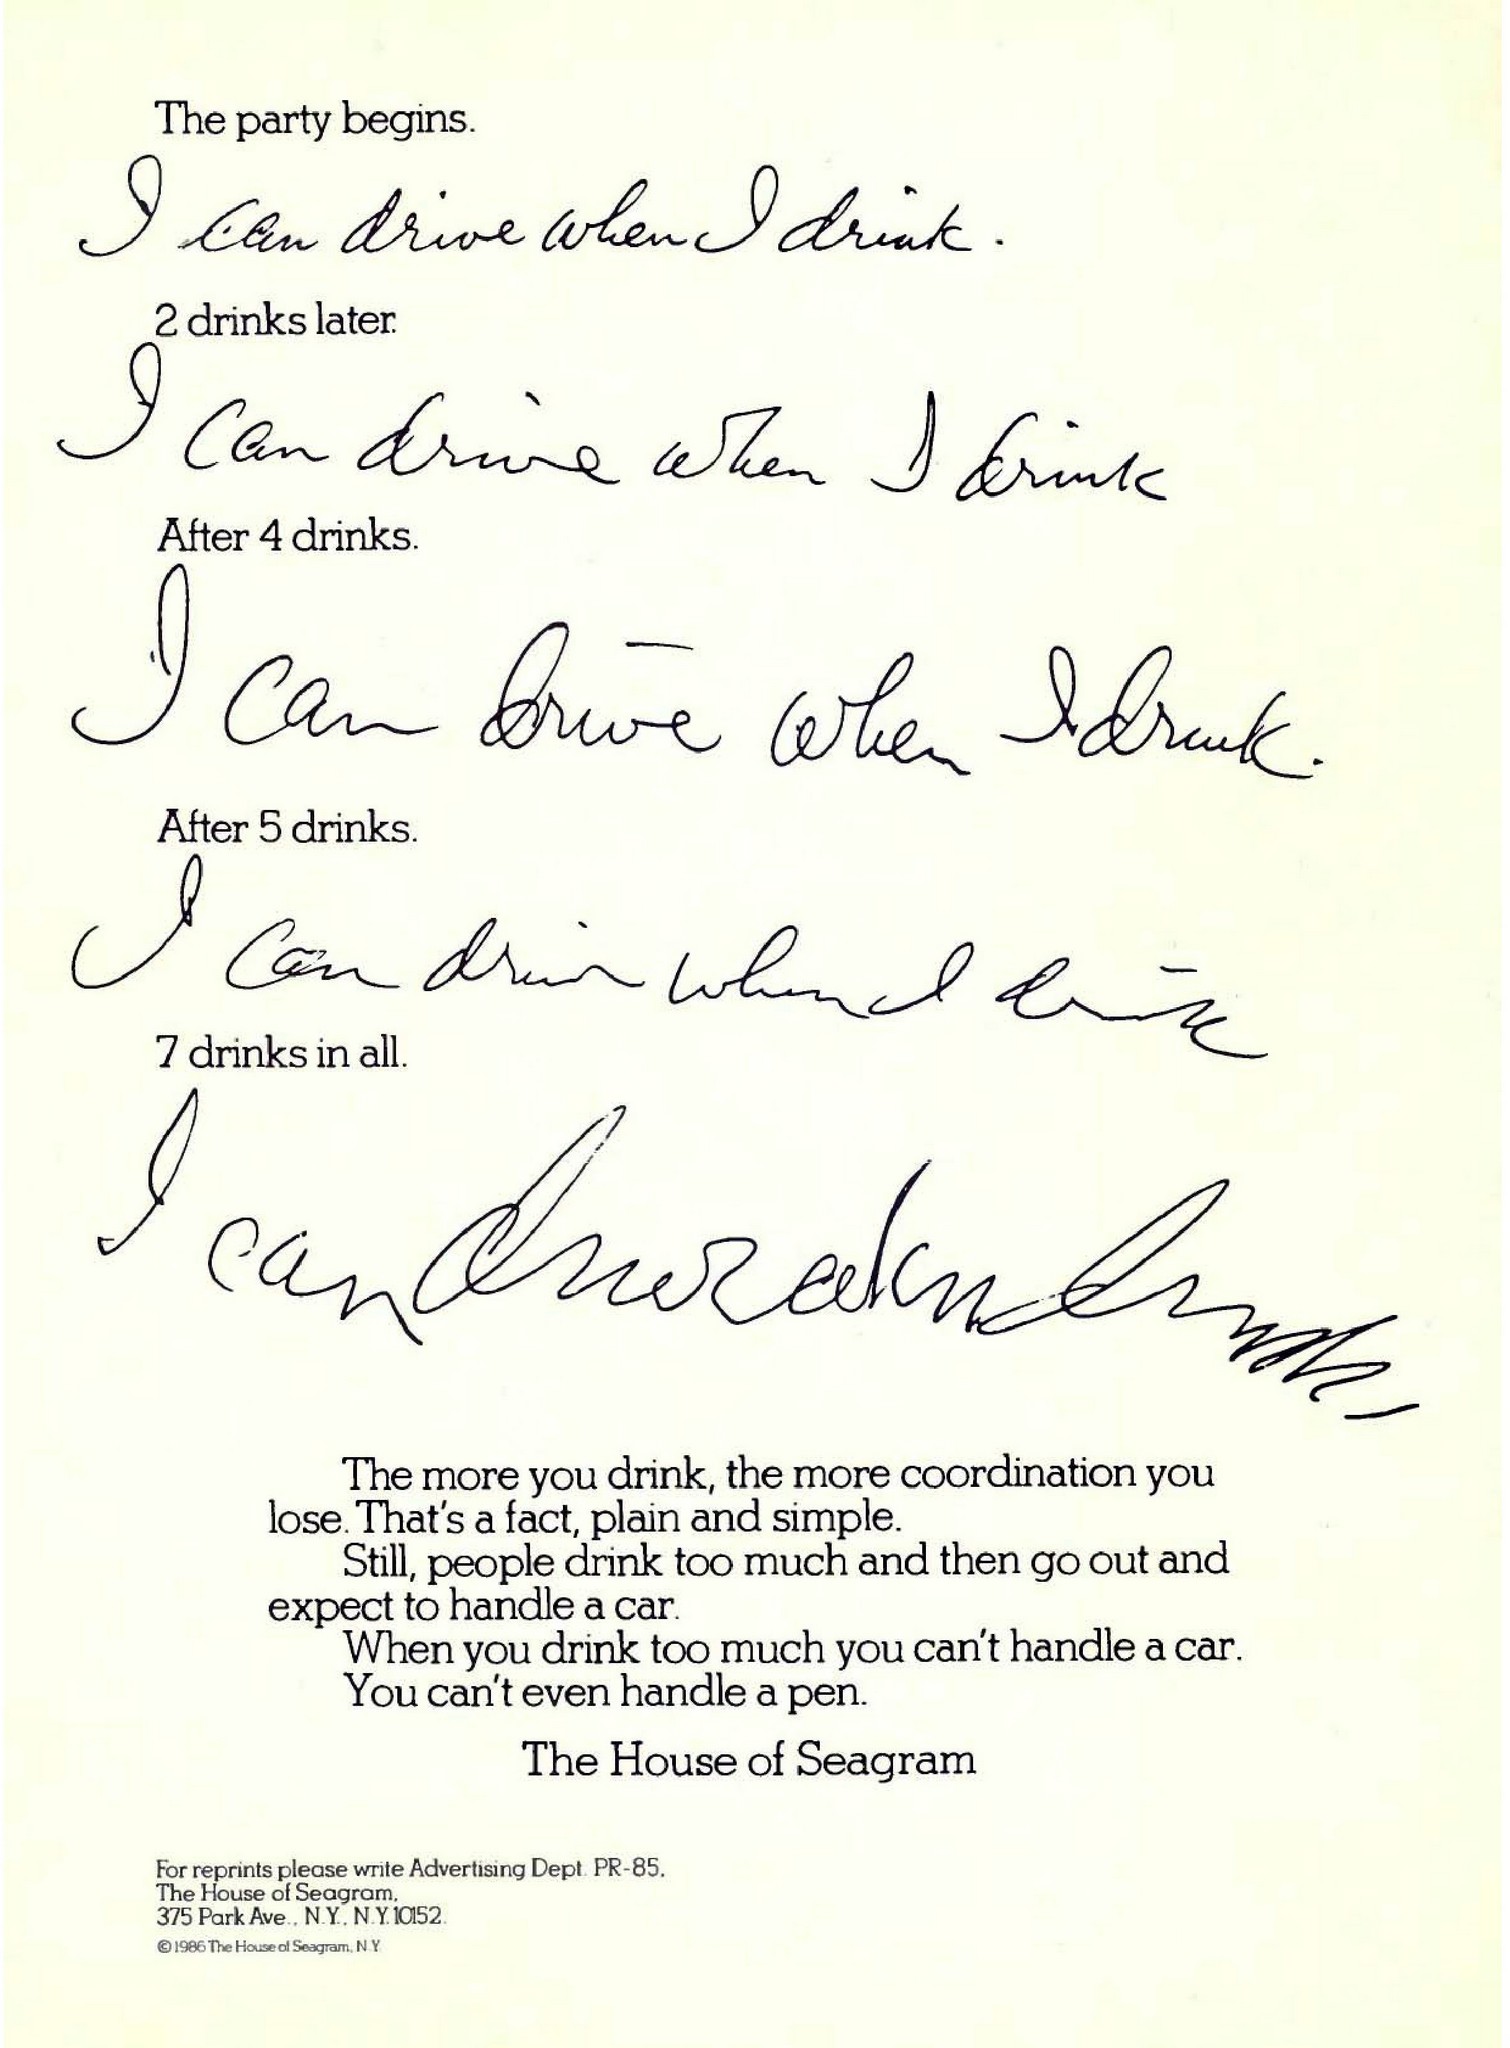 The party begins.
I can drive when I drink.
2 drinks later.
I can drive when I drink
After 4 drinks.
I can drive when I drink.
After 5 drinks.
I can driv when I drink
7 drinks in all.
I can
The more you drink, the more coordination you
lose. That's a fact, plain and simple.
Still, people drink too much and then go out and
expect to handle a car.
When you drink too much you can't handle a car.
You can't even handle a pen.
The House of Seagram
For reprints please write Advertising Dept. PR-85.
The House of Seagram,
375 Park Ave., N.Y., N.Y. 10152.
©1986 The House of Seagram, N.Y.